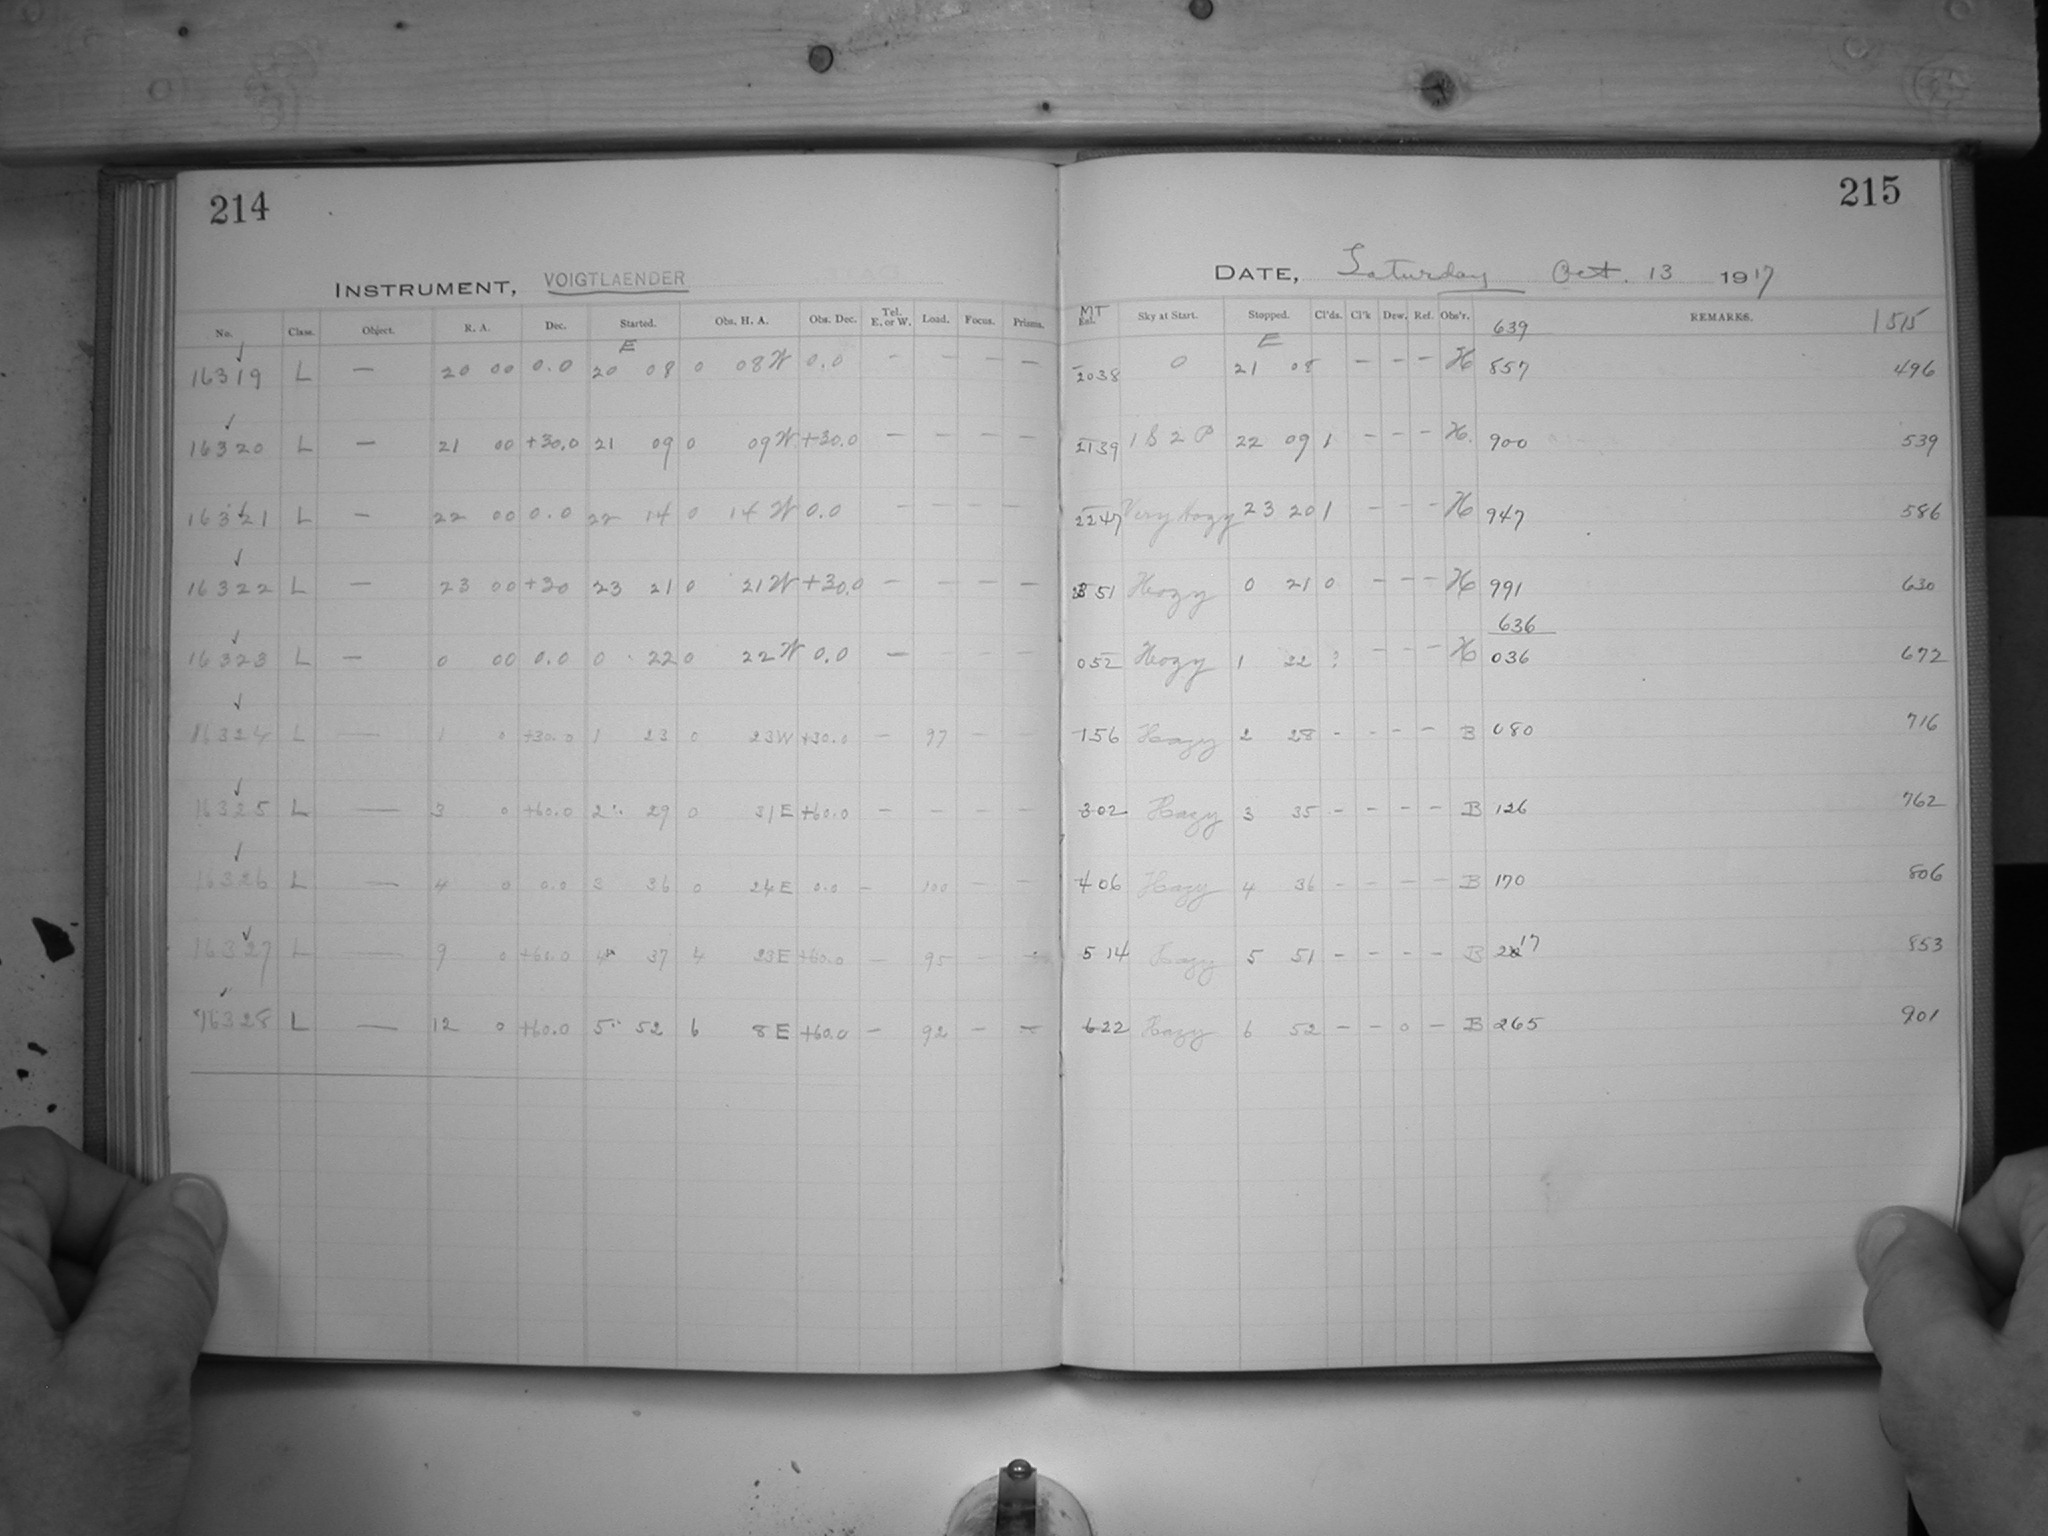 214
215
INSTRUMENT, VOIGTLAENDER
DATE, Saturday Oct. 13 1917
No. Class. Object. R. A. Dec. Started. Obs. H. A. Obs. Dec. Tel. E. or W. Load. Focus. Prisms. MT Sky at Start. Stopped. Cl'ds. Cl'k Dew. Ref. Obs'r. 639 REMARKS. 1515
E E
16319 L — 20 00 0.0 20 08 0 08 W 0.0 — — — — 2038 0 21 08 — — — H 857 496
16320 L — 21 00 +30.0 21 09 0 09 W +30.0 — — — — 2139 1 S 2 P 22 09 1 — — — H. 900 539
16321 L — 22 00 0.0 22 14 0 14 W 0.0 — — — — 2247 Very Hazy 23 20 1 — — — H 947 586
16322 L — 23 00 +30 23 21 0 21 W +30.0 — — — — 2351 Hazy 0 21 0 — — — H 991 630
636
16323 L — 0 00 0.0 0 22 0 22 W 0.0 — — — — 052 Hazy 1 22 ? — — — H 036 672
16324 L — 1 0 +30.0 1 23 0 23 W +30.0 — 97 — — 156 Hazy 2 28 - - - - B 080 716
16325 L — 3 0 +60.0 2 29 0 31 E +60.0 — — — — 302 Hazy 3 35 - - - - B 126 762
16326 L — 4 0 0.0 3 36 0 24 E 0.0 — 100 — — 406 Hazy 4 36 - - - - B 170 806
16327 L — 9 0 +60.0 4 37 4 23 E +60.0 — 95 — — 514 Hazy 5 51 - - - - B 217 853
16328 L — 12 0 +60.0 5 52 6 8 E +60.0 — 92 — — 622 Hazy 6 52 - - 0 - B 265 901